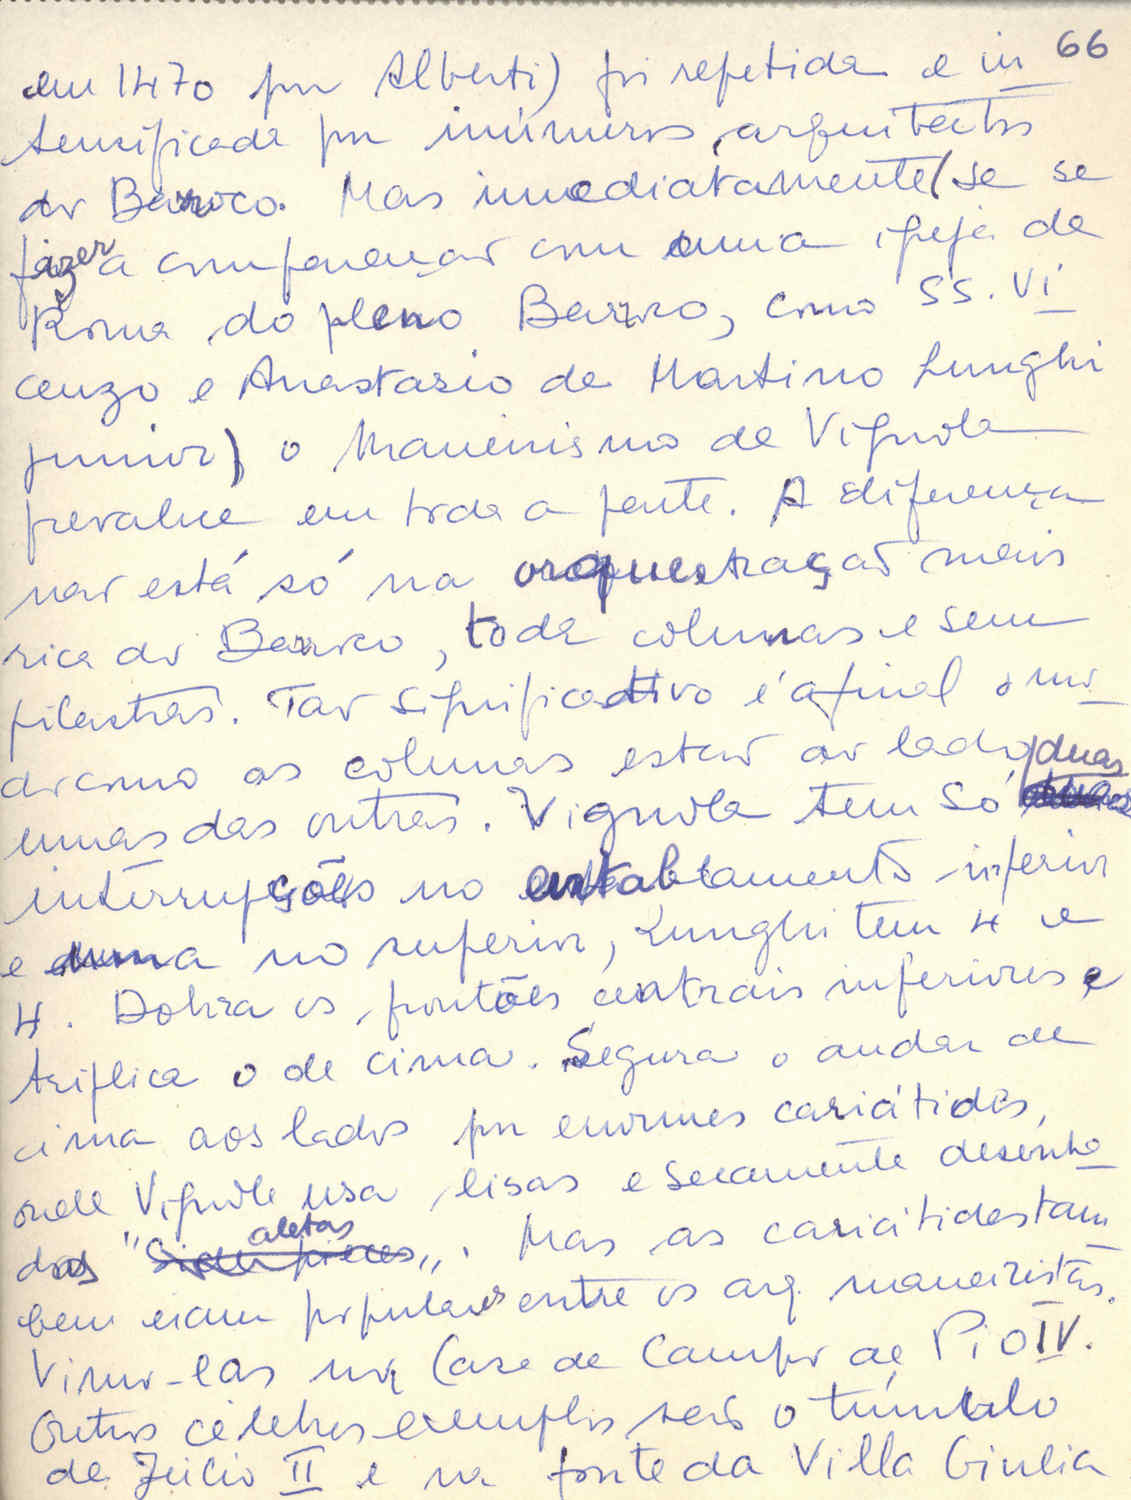 66
em 1470 por Alberti) foi repetida e in
tensificada por inúmeros arquitectos
do Barroco. Mas imediatamente (se se
fizer a comparação com uma igreja de
Roma do pleno Barroco, como SS. Vi
cenzo e Anastasio de Martino Lunghi
junior) o Maneirismo de Vignola
prevalece em toda a parte. A diferença
não está só na orquestração mais
rica do Barroco, toda colunas e sem
pilastras. Tão significativo é afinal o mo
do como as colunas estão ao lado
umas das outras. Vignola tem só duas
interrupções no entablamento inferior
e uma no superior, Lunghi tem 4 e
4. Dobra os frontões centrais inferiores e
triplica o de cima. Segura o andar de
cima aos lados por enormes cariátides,
onde Vignola usa lisas e secamente desenha
das "aletas". Mas as cariátides tam
bem eram populares entre os arq. maneiristas.
Vimo-las na Casa de Campo de Pio IV.
Outros célebres exemplos são o túmulo
de Júlio II e na fonte da Villa Giulia